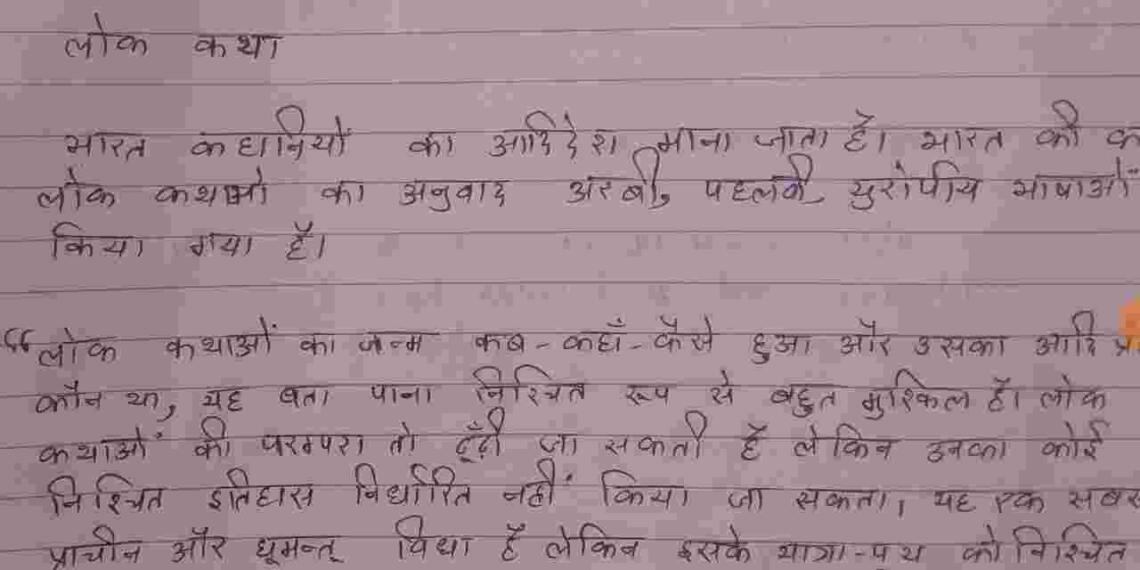 लोक कथा
भारत कहानियों का आदि देश माना जाता है। भारत की
लोक कथाओं का अनुवाद अरबी, पहलवी, युरोपीय भाषाओं
किया गया है।
“लोक कथाओं का जन्म कब - कहाँ - कैसे हुआ और उसका आदि
कौन था, यह बता पाना निश्चित रूप से बहुत मुश्किल है। लोक
कथाओं की परम्परा तो ढूँढ़ी जा सकती है लेकिन उनका कोई
निश्चित इतिहास निर्धारित नहीं किया जा सकता, यह एक
प्राचीन और घूमन्तू विधा है लेकिन इसके यात्रा-पथ को निश्चित